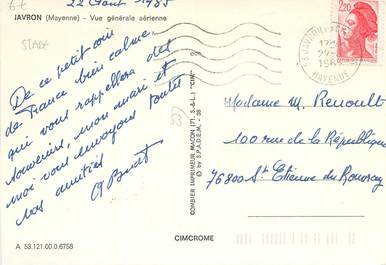 6€
22 Août 1985
JAVRON (Mayenne) - Vue générale aérienne
De ce petit coin
de France bien calme,
qui vous rappellera des
souvenirs, mon mari et
moi vous envoyons toutes
nos amitiés
COMBIER IMPRIMEUR MACON (71. S.-&-L.) "CIM"
© by S.P.A.D.E.M.
53
2,20
MAYENNE
Madame M. Renoult
100 rue de la République
76800 St Etienne du Rouvray
A 53.121.00.0.6758
CIMCROME